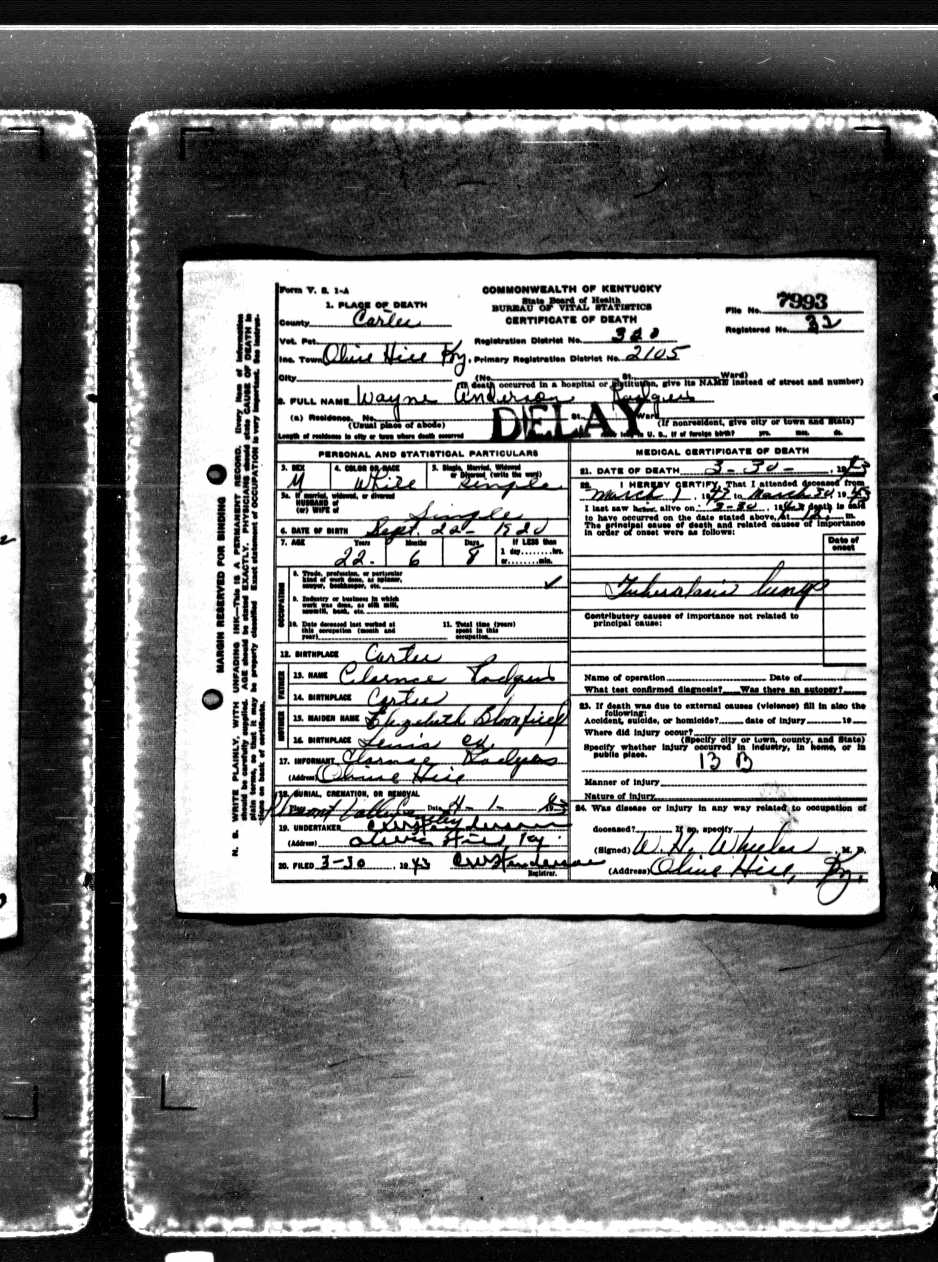 Form V. S. 1-A
COMMONWEALTH OF KENTUCKY
State Board of Health
BUREAU OF VITAL STATISTICS
CERTIFICATE OF DEATH
File No. 7993
Registered No. 32
1. PLACE OF DEATH
County Carter
Vot. Pct.
Registration District No.
Inc. Town Olive Hill Ky. Primary Registration District No. 2105
City (No. St. Ward)
(If death occurred in a hospital or institution, give its NAME instead of street and number)
2. FULL NAME Wayne Anderson Rodgers
DELAY
(a) Residence. No. St. Ward
(Usual place of abode) (If nonresident, give city or town and State)
Length of residence in city or town where death occurred U. S., if of foreign birth? yrs. mos. ds.
PERSONAL AND STATISTICAL PARTICULARS
3. SEX M
4. COLOR OR RACE White
5. Single, Married, Widowed or Divorced (write the word) Single
5a. If married, widowed, or divorced
HUSBAND of
(or) WIFE of Single
6. DATE OF BIRTH Sept. 22 - 1920
7. AGE Years 22 Months 6 Days 8 If LESS than 1 day hrs. or min.
OCCUPATION
8. Trade, profession, or particular kind of work done, as spinner, sawyer, bookkeeper, etc.
9. Industry or business in which work was done, as silk mill, sawmill, bank, etc.
10. Date deceased last worked at this occupation (month and year)
11. Total time (years) spent in this occupation
12. BIRTHPLACE Carter
FATHER
13. NAME Clarence Rodgers
14. BIRTHPLACE Carter
MOTHER
15. MAIDEN NAME Elizabeth
16. BIRTHPLACE Lewis Co.
17. INFORMANT Clarence Rodgers
(Address) Olive Hill
18. BURIAL, CREMATION, OR REMOVAL
Valley Date 4-1-43
19. UNDERTAKER Henderson
(Address) Olive Hill Ky
20. FILED 3-30, 1943 Henderson
Registrar.
MEDICAL CERTIFICATE OF DEATH
21. DATE OF DEATH 3-30-, 1943
22. I HEREBY CERTIFY, That I attended deceased from
March 1, 19 to March 30, 1943
I last saw h alive on 3-30, 194 death is said
to have occurred on the date stated above, at 12 m.
The principal cause of death and related causes of importance
in order of onset were as follows:
Date of onset
Tuberculosis lungs
Contributory causes of importance not related to
principal cause:
Name of operation Date of
What test confirmed diagnosis? Was there an autopsy?
23. If death was due to external causes (violence) fill in also the
following:
Accident, suicide, or homicide? date of injury 19
Where did injury occur?
(Specify city or town, county, and State)
Specify whether injury occurred in industry, in home, or in
public place.
13 B
Manner of injury
Nature of injury
24. Was disease or injury in any way related to occupation of
deceased? If so, specify
(Signed) W. H. Wheeler, M. D.
(Address) Olive Hill, Ky.
MARGIN RESERVED FOR BINDING
N. B. WRITE PLAINLY, WITH UNFADING INK—THIS IS A PERMANENT RECORD. Every item of information
should be carefully supplied. AGE should be stated EXACTLY. PHYSICIANS should state CAUSE OF DEATH in
plain terms, so that it may be properly classified. Exact statement of OCCUPATION is very important. See instruc-
tions on back of certificate.